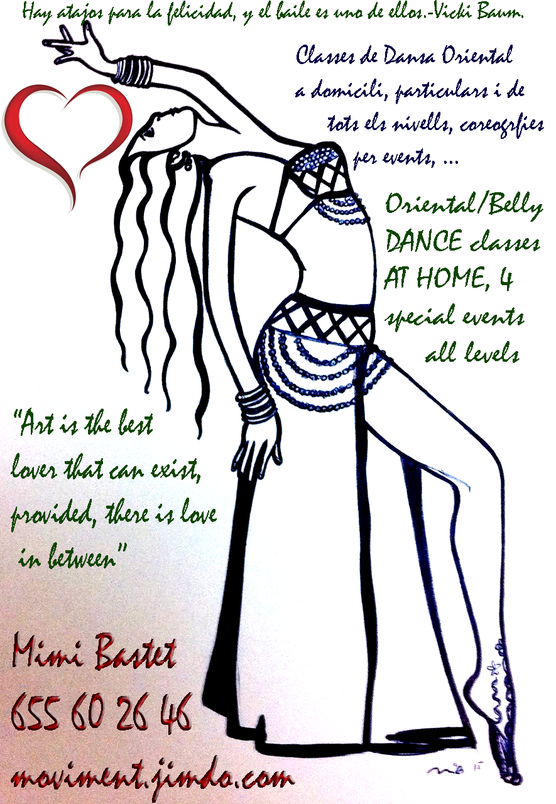 Hay atajos para la felicidad, y el baile es uno de ellos.-Vicki Baum.
Classes de Dansa Oriental
a domicili, particulars i de
tots els nivells, coreogrfies
per events, ...
Oriental/Belly
DANCE classes
AT HOME, 4
special events
all levels
"Art is the best
lover that can exist,
provided, there is love
in between"
Mimi Bastet
655 60 26 46
moviment.jimdo.com